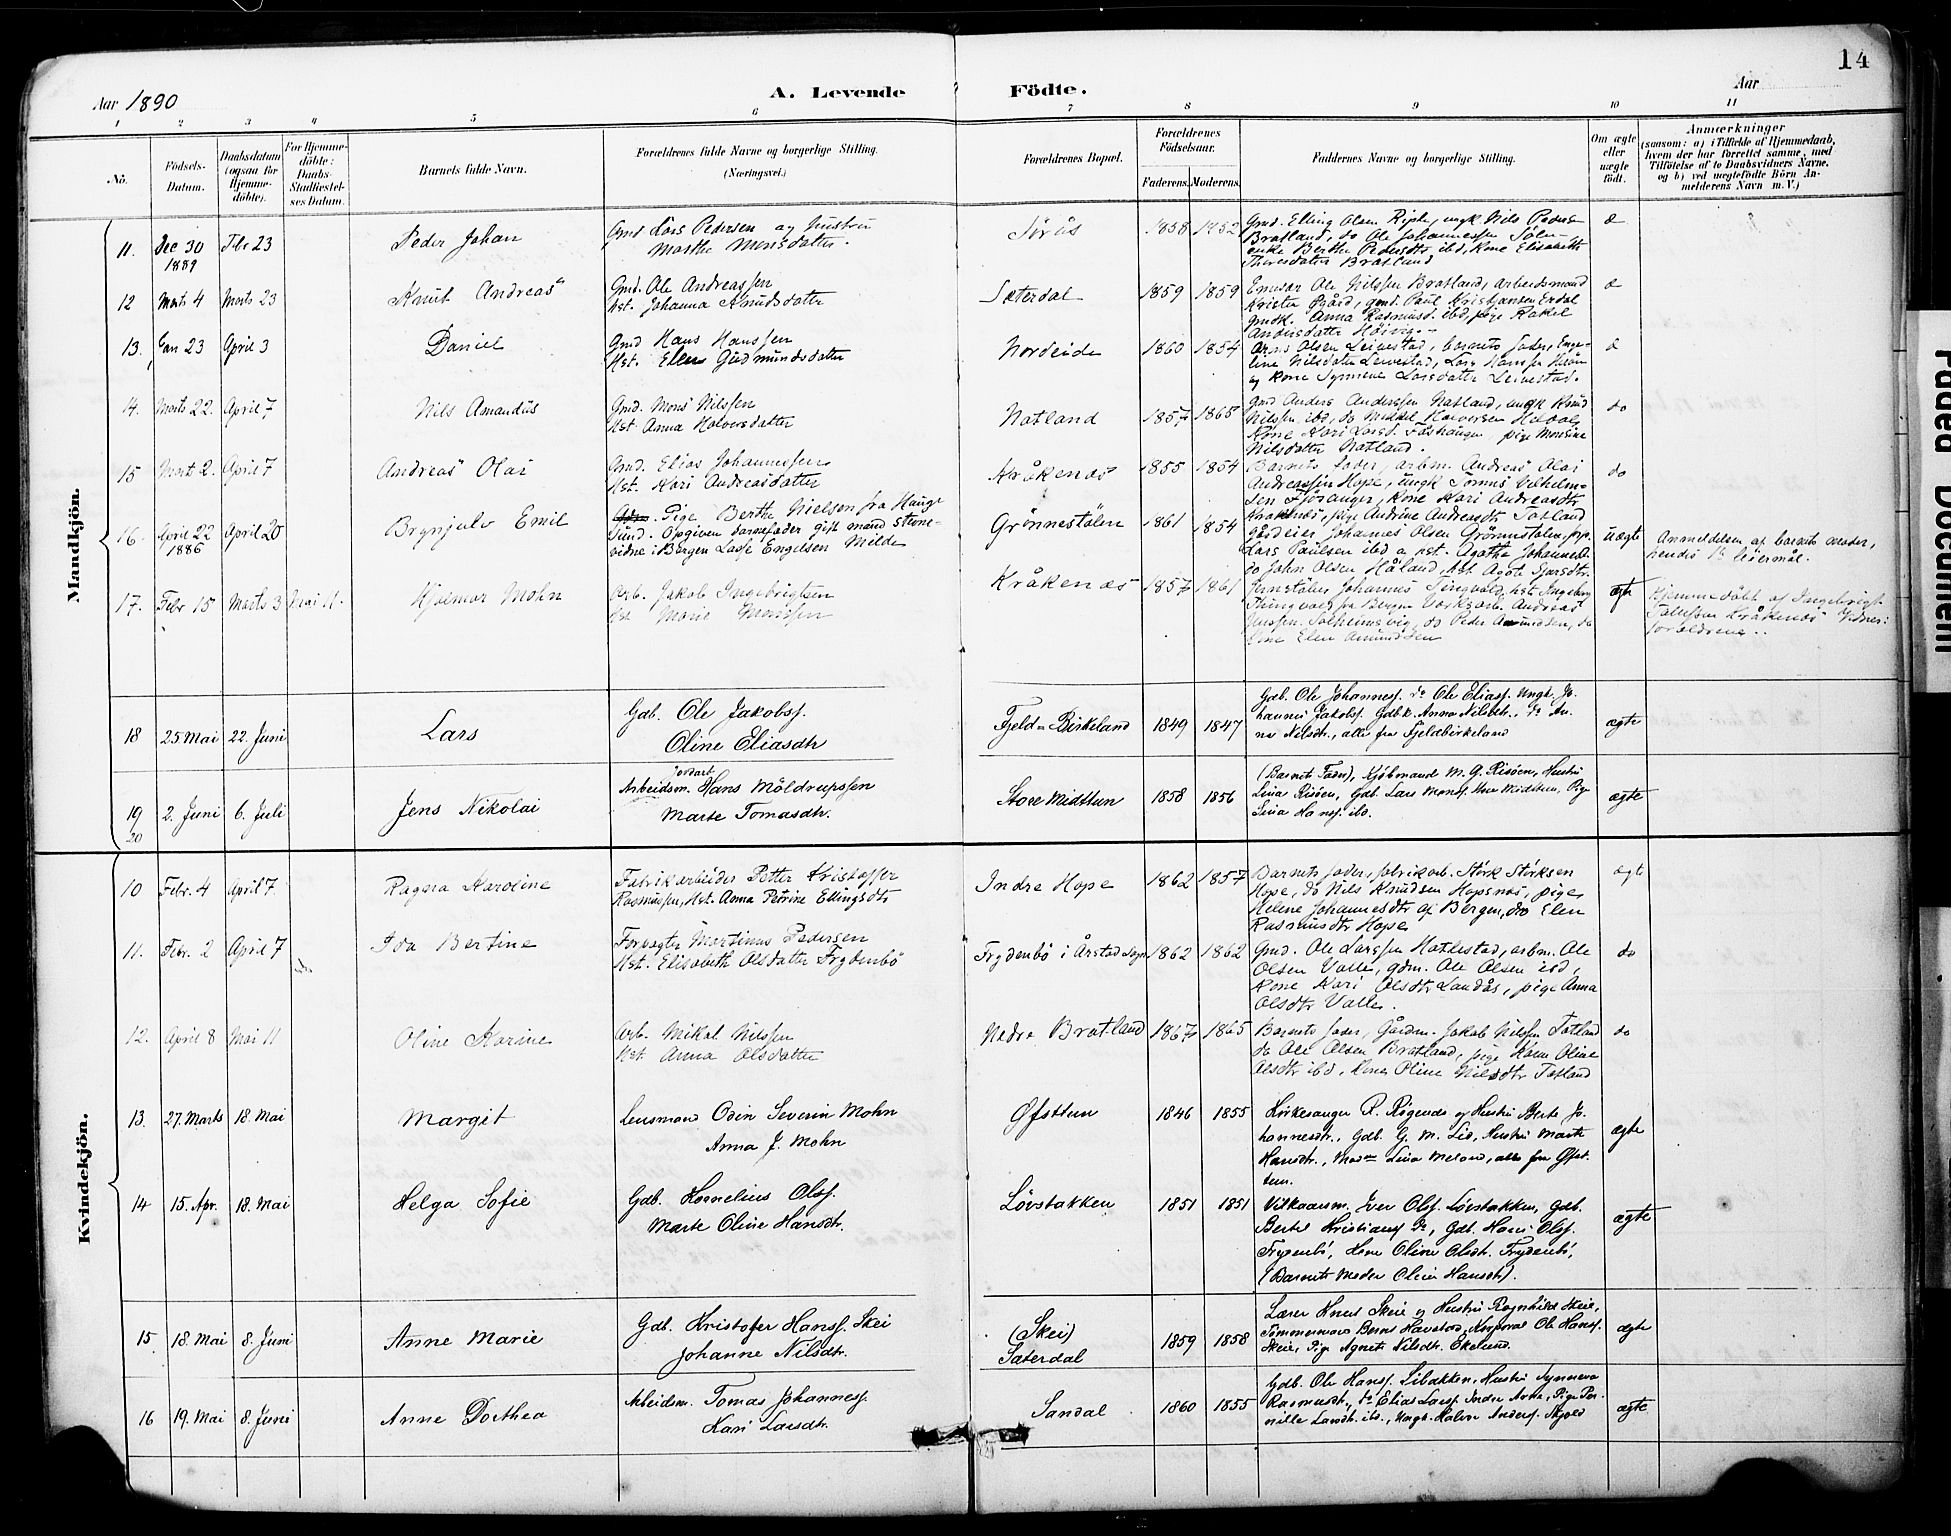 14
Aar 1890
A. Levende Födte.
Aar
1 2 3 4 5 6 7 8 9 10 11
No.
Födsels-Datum.
Daabsdatum (ogsaa for Hjemme-döbte).
For Hjemme-döbte: Daabs-Stadfæstel-ses Datum.
Barnets fulde Navn.
Forældrenes fulde Navne og borgerlige Stilling.
(Næringsvei.)
Forældrenes Bopæl.
Forældrenes Födselsaar.
Faderens. Moderens.
Faddernes Navne og borgerlige Stilling.
Om ægte eller uægte födt.
Anmærkninger
(saasom: a) i Tilfælde af Hjemmedaab,
hvem der har forrettet samme, med
Tilföielse af to Daabsvidners Navne,
og b) ved uægtefödte Börn An-
melderens Navn m. V.)
Mandkjön.
11. Dec 30 1889 Fbr 23 Peder Johan
Gmd Lars Pedersen og hustru
Marthe Monsdatter.
Sörås 1858 1852
Gmd. Elling Olsen Riple, ungk. Nils Peders
Bratland, do Ole Johannessen Sölen
enke Berthe Pedersdtr ibd, Kone Elisabeth
Theresdatter Bratland
12 Marts 4 Marts 23 Knut Andreas
Gmd. Ole Andreassen
Hst. Johanna Knudsdatter
Sæterdal 1859 1859
Ole Nilssen Bratland, arbeidsmand
gmd. Paul Kristjansen Erdal
gmdk. Anna Rasmusd. ibd, pige Rakel
Andersdatter
13. Jan 23 April 3 Daniel
Gmd Hans Hanssen
Hst. Elen Gudmundsdatter
Nordeide 1860 1854
Arne Olsen Leirestad, barnets fader, Enge-
line Nilsdatter Leirestad, Lars Hanssen
og kone Synneve Larsdatter Leirestad.
14. Marts 22. April 7 Nils Amandus
Gmd. Mons Nilssen
Hst. Anna Halvorsdatter
Natland 1857 1865
Gmd Anders Anderssen Natland, ungk Knud
Nilssen ibd, do Halvorsen
Kone Kari Larsd. pige Monsine
Nilsdatter Natland.
do
15 Marts 2. April 7 Andreas Olai
Gmd. Elias Johannessen
Hst. Kari Andreasdatter
Kråkenæs 1855 1854
Barnets fader, arbm. Andreas Olai
Andreassen Hope, ungk Tomas Vilhelm-
sen Fjösanger, Kone Kari Andreasdtr
Kråkenæs, pige Andrine Andreasdtr Tatland
do
16. April 22 1886 April 20 Brynjulv Emil
Pige Berthe Nielsen fra Hauge
sund. Opgiven barnefader gift mand stevne-
vidne i Bergen Lasse Engelsen Milde
Grönnestölen 1861 1854
gårdeier Johannes Olsen Grönnestølen,
Lars Paulsen ibd a hst. Agathe
do John Olsen Håland, hst. Agate
uægte
Anmeldelsen af barnets moder,
hendes 1ste leiermål.
17. Febr 15 Marts 3 Mai 11. Hjalmar Mohn
Arb. Jakob Ingebrigtsen
Hst Marie Monssen
Kråkenæs 1857 1861
Johannes Tingvald, hst. Ingeborg
Tingvald fra Bergen Andreas
Janssen Solheimsvig, do Peder Amundsen, do
Kone Elen Amundsen
ægte
Hjemmedöbt af Ingebrigt
Kråkenæs Vidner:
forældrene..
18 25 Mai 22. Juni Lars
Gdb. Ole Jakobss.
Oline Eliasdtr
Fjeld-Birkeland 1849 1847
Gdb. Ole Johanness. do Ole Eliass. Ungk. Jo-
hannes Jakobss. Gdbk. Anna Nilsdtr., do An-
na Nilsdtr., alle fra Fjeldbirkeland
ægte
19 2. Juni 6. Juli Jens Nikolai
Arbeidsm. Hans Möldrupssen
Marte Tomasdtr.
Store Midttun 1858 1856
(Barnets Fader), Kjöbmand M. G. Risöen, Hustru
Lina Risöen, Gdb. Lars Monss. Store Midttun, Pige
Lina Hanss. ibd.
ægte
20
Kvindekjön.
10 Febr. 4 April 7 Ragna Karoline
Fabrikarbeider Petter Kristoffer
Rasmussen, Hst. Anna Petrine Ellingsdtr
Indre Hope 1862 1857
Barnets fader, fabrikarb. Störk Störksen
Hope, do Nils Knudsen Hopsnæs, pige
Helene Johannesdtr af Bergen, do Elen
Rasmusdtr Hope
ægt
11. Febr. 2 April 7 Ida Bertine
Forpagter Martinus Pedersen
Hst. Elisabeth Olsdatter Frydenbö
Frydenbö i Årstad sogn 1862 1862
Gmd. Ole Larssen Hatlestad, arbm. Ole
Olsen Valle, gdm. Ole Olsen ibd,
kone Kari Olsdtr Landås, pige Anna
Olsdtr Valle.
do
12. April 8 Mai 11 Oline Karine
Arb. Mikal Nilssen
Hst Anna Olsdatter
Nedre Bratland 1867 1865
Barnets fader, Gårdm. Jakob Nilssen Tatland
do Ole Olsen Bratland, pige Karen Oline
Olsdtr ibd, kone Oline Nilsdtr Tatland
do
13. 27. Marts 18. Mai Margit
Lensmand Odin Severin Mohn
Anna J. Mohn
Øfsttun 1846 1855
Kirkesanger R. Rögenes og Hustru Berte Jo-
hannesdtr., Gdb. G. M. Lid, Hustru Marte
Hansdtr., Madm Lina Meland, alle fra Øfst-
tun.
ægte
14 15. Apr. 18. Mai Helga Sofie
Gdb. Kornelius Olss.
Marte Oline Hansdtr.
Lövstakken 1851 1851
Vilkaarsm. Iver Olss. Lövstakken, Gdb.
Bertel Kristians. do, Gdb. Hans Olss.
Frydenbö, Kone Oline Olsdtr. Frydenbö,
(Barnets Moder Oline Hansdtr).
ægte
15 18. Mai 8. Juni Anne Marie
Gdb. Kristofer Hanss. Skei
Johanne Nilsdtr.
(Skei)
Sæterdal 1859 1858
Lærer Knud Skeie og Hustru Ragnhild Skeie,
Tömmermand Bernt Havstad, Korporal Ole Hanss.
Skeie, Pige Agnete Nilsdtr. Ekelund.
ægte
16 19. Mai 8. Juni Anne Dorthea
Arbeidsm. Tomas Johanness.
Kari Larsdtr.
Sandal 1860 1855
Gdb. Ole Hanss. Libakken, Hustru Synneva
Rasmusdtr., do Elias Larss. Indre Arne, Pige Per-
nille Larsdtr. ibd., Ungk. Halvor Anders. Skjold
ægte
Faded Document